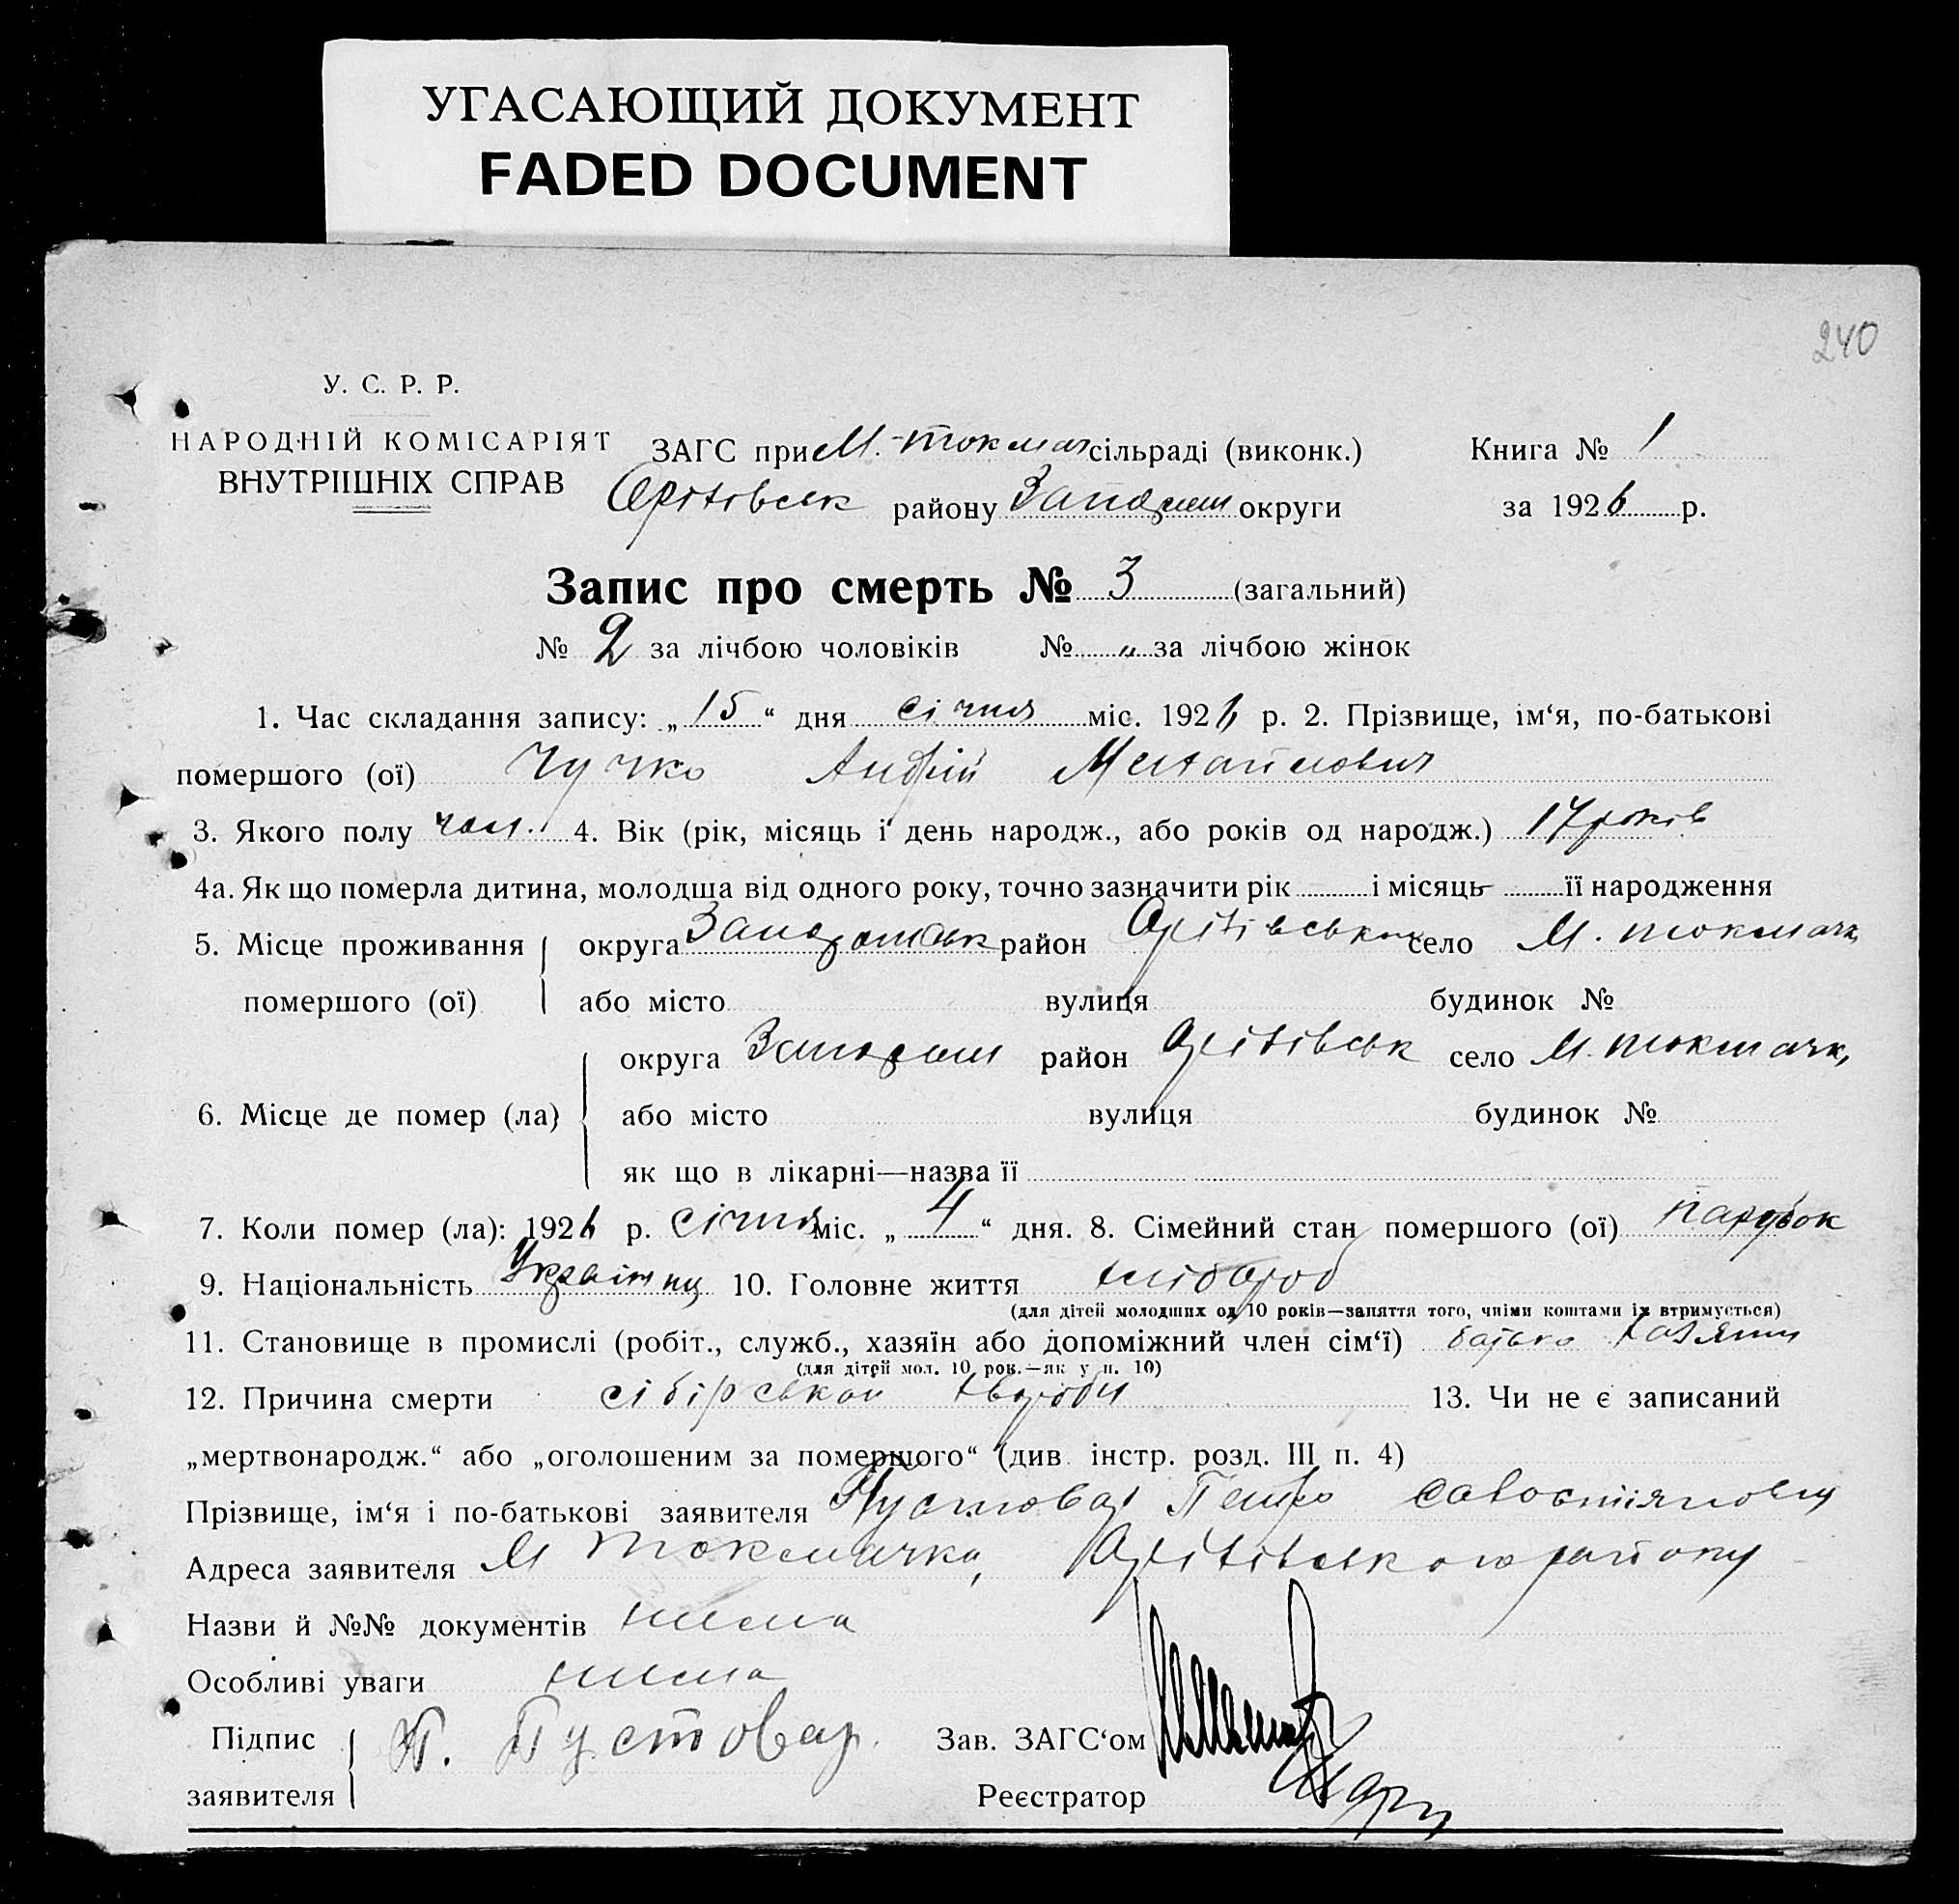 УГАСАЮЩИЙ ДОКУМЕНТ
FADED DOCUMENT
240
У. С. Р. Р.
НАРОДНІЙ КОМІСАРІЯТ
ВНУТРІШНІХ СПРАВ
ЗАГС при М.-токмач сільраді (виконк.)
Оріхівськ району Запоріж округи
Книга № 1
за 1926 р.
Запис про смерть № 3 (загальний)
№ 2 за лічбою чоловіків № „ за лічбою жінок
1. Час складання запису: „15“ дня січня міс. 1926 р. 2. Прізвище, ім‘я, по-батькові
помершого (ої) Чучко Андрій Михайлович
3. Якого полу чол. 4. Вік (рік, місяць і день народж., або років од народж.) 17 років
4а. Як що померла дитина, молодша від одного року, точно зазначити рік і місяць її народження
5. Місце проживання округа Запоріжськ район Оріхівського село М. токмачк,
помершого (ої) або місто вулиця будинок №
округа Запоріж район Оріхівськ село М. токмачк,
6. Місце де помер (ла) або місто вулиця будинок №
як що в лікарні—назва її
7. Коли помер (ла): 1926 р. січня міс. „4“ дня. 8. Сімейний стан помершого (ої) парубок
9. Національність Українец 10. Головне життя хлібороб
(для дітей молодших од 10 років—заняття того, чиїми коштами їх втримується)
11. Становище в промислі (робіт., служб., хазяїн або допоміжний член сім‘ї) батько хазяин
(для дітей мол. 10 рок.—як у п. 10)
12. Причина смерти сібірськой хвороби 13. Чи не є записаний
„мертвонародж.“ або „оголошеним за помершого“ (див. інстр. розд. III п. 4)
Прізвище, ім‘я і по-батькові заявителя Пустовар Петро Савостіянович
Адреса заявителя М Токмачка, Оріхівського району
Назви й №№ документів нима
Особливі уваги нима
Підпис
заявителя П. Пустовар.
Зав. ЗАГС‘ом
Реєстратор